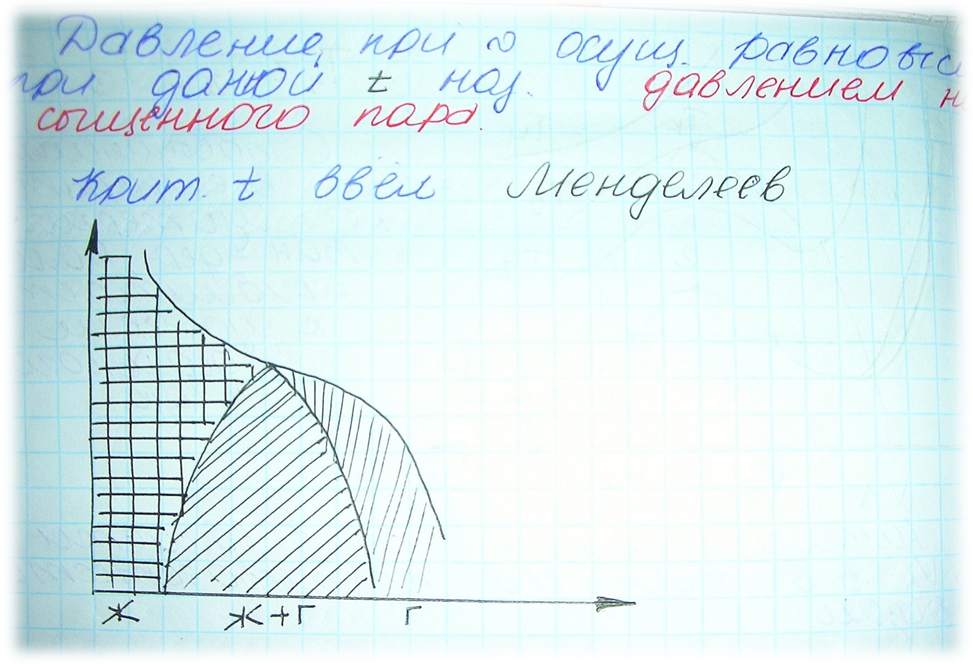 Давление, при ~ осущ. равновес
при данной t наз. давлением на
сыщенного пара.
Крит. t ввёл Менделеев
Ж Ж+Г Г